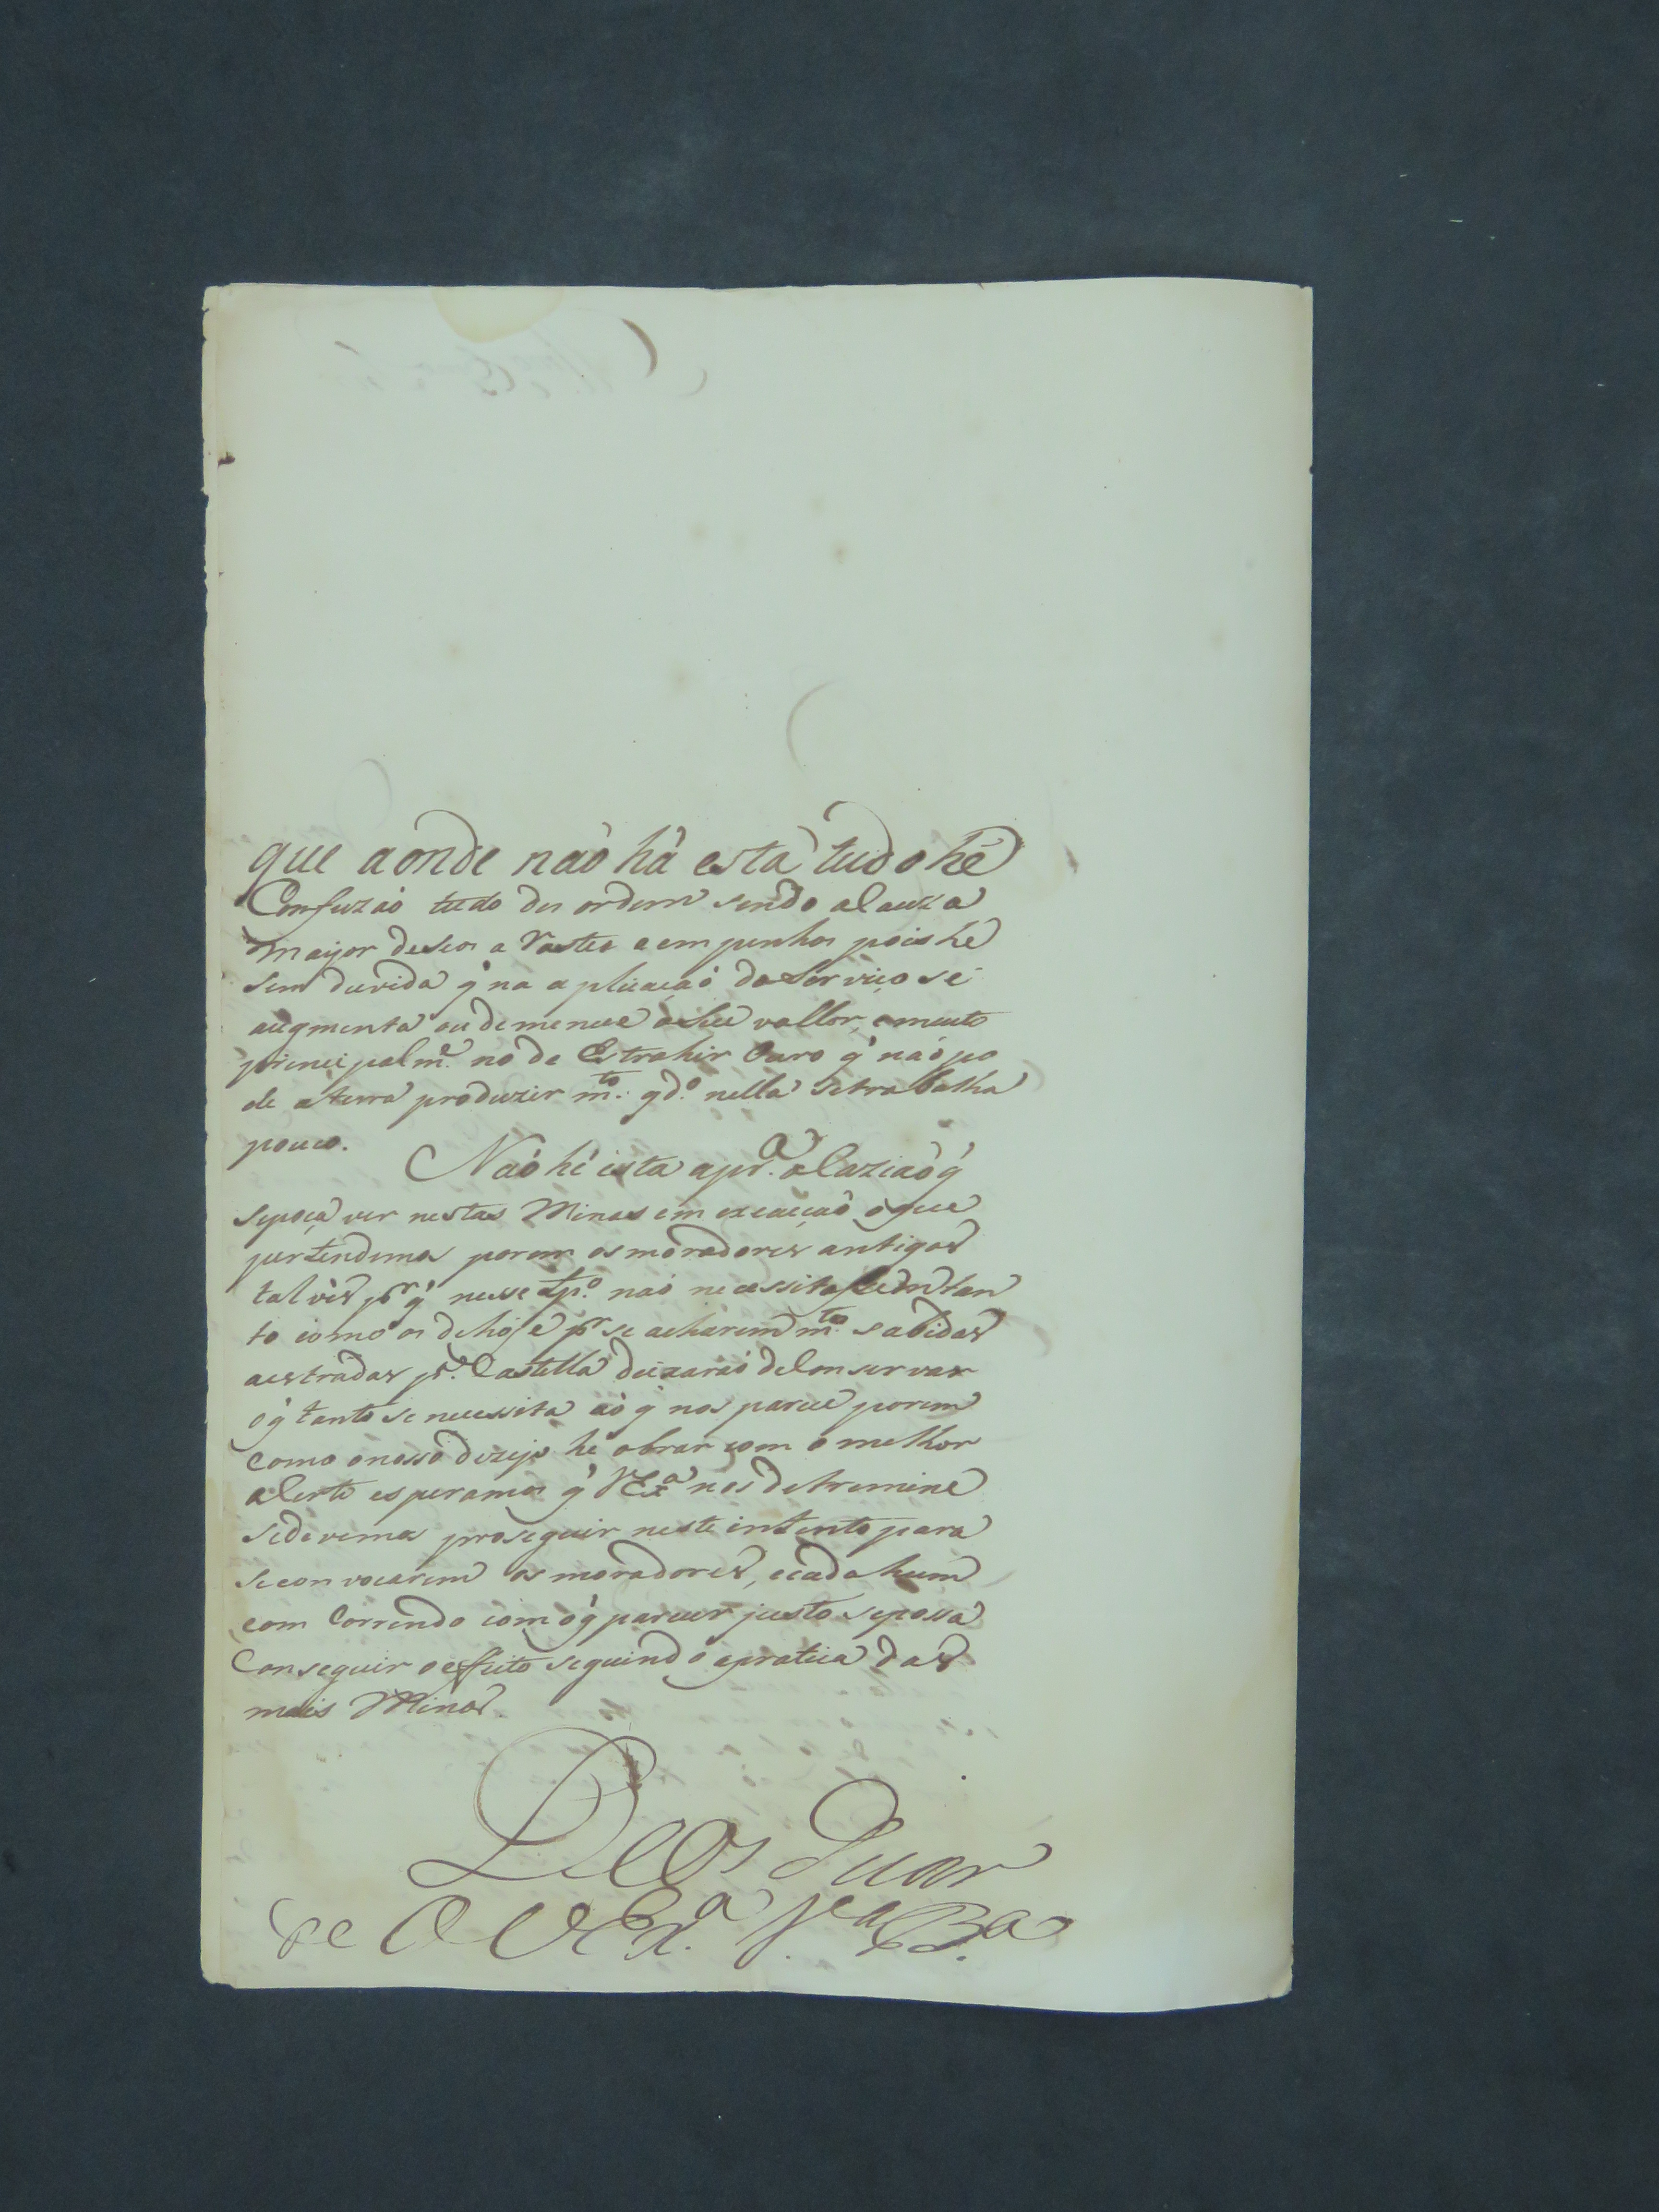 que aonde naó há esta tudo hé
Confuzaó tudo des ordem sendo a Cauza
mayor deseos a Vastos e empenhos pois hé
sem duvida q̃ na aplicaçaó do Serviço se
augmenta ou demenue o seu vallor, e muito
principalm.e no de Extrahir Ouro q̃ naó po
de a terra produzir m.to qd.o nella se trabalha
pouco.
Naó hé esta a pr.a ocaziaó q̃
se poça ver nestas Minas em execuçaó o que
pertendemos porem os moradores antigos
talvés p.r q̃ nesse tp.o naó necessitassem tan
to como os de hoje p.r se acharem m.to sabidas
as estradas p.a Castella deixaraó de Conservar
o q̃ tanto se necessita ao q̃ nos parece porem
como o nosso dezejo hé obrar com o melhor
aCerto esperamos q̃ V Ex.a nos detremine
se devemos proseguir neste intento para
se convocarem os moradores, e cada hum
com Correndo com o q̃ parecer justo se possa
Conseguir o effeito seguindo a pratica das
mais Minas.
Deos Guar
de a V Ex.a